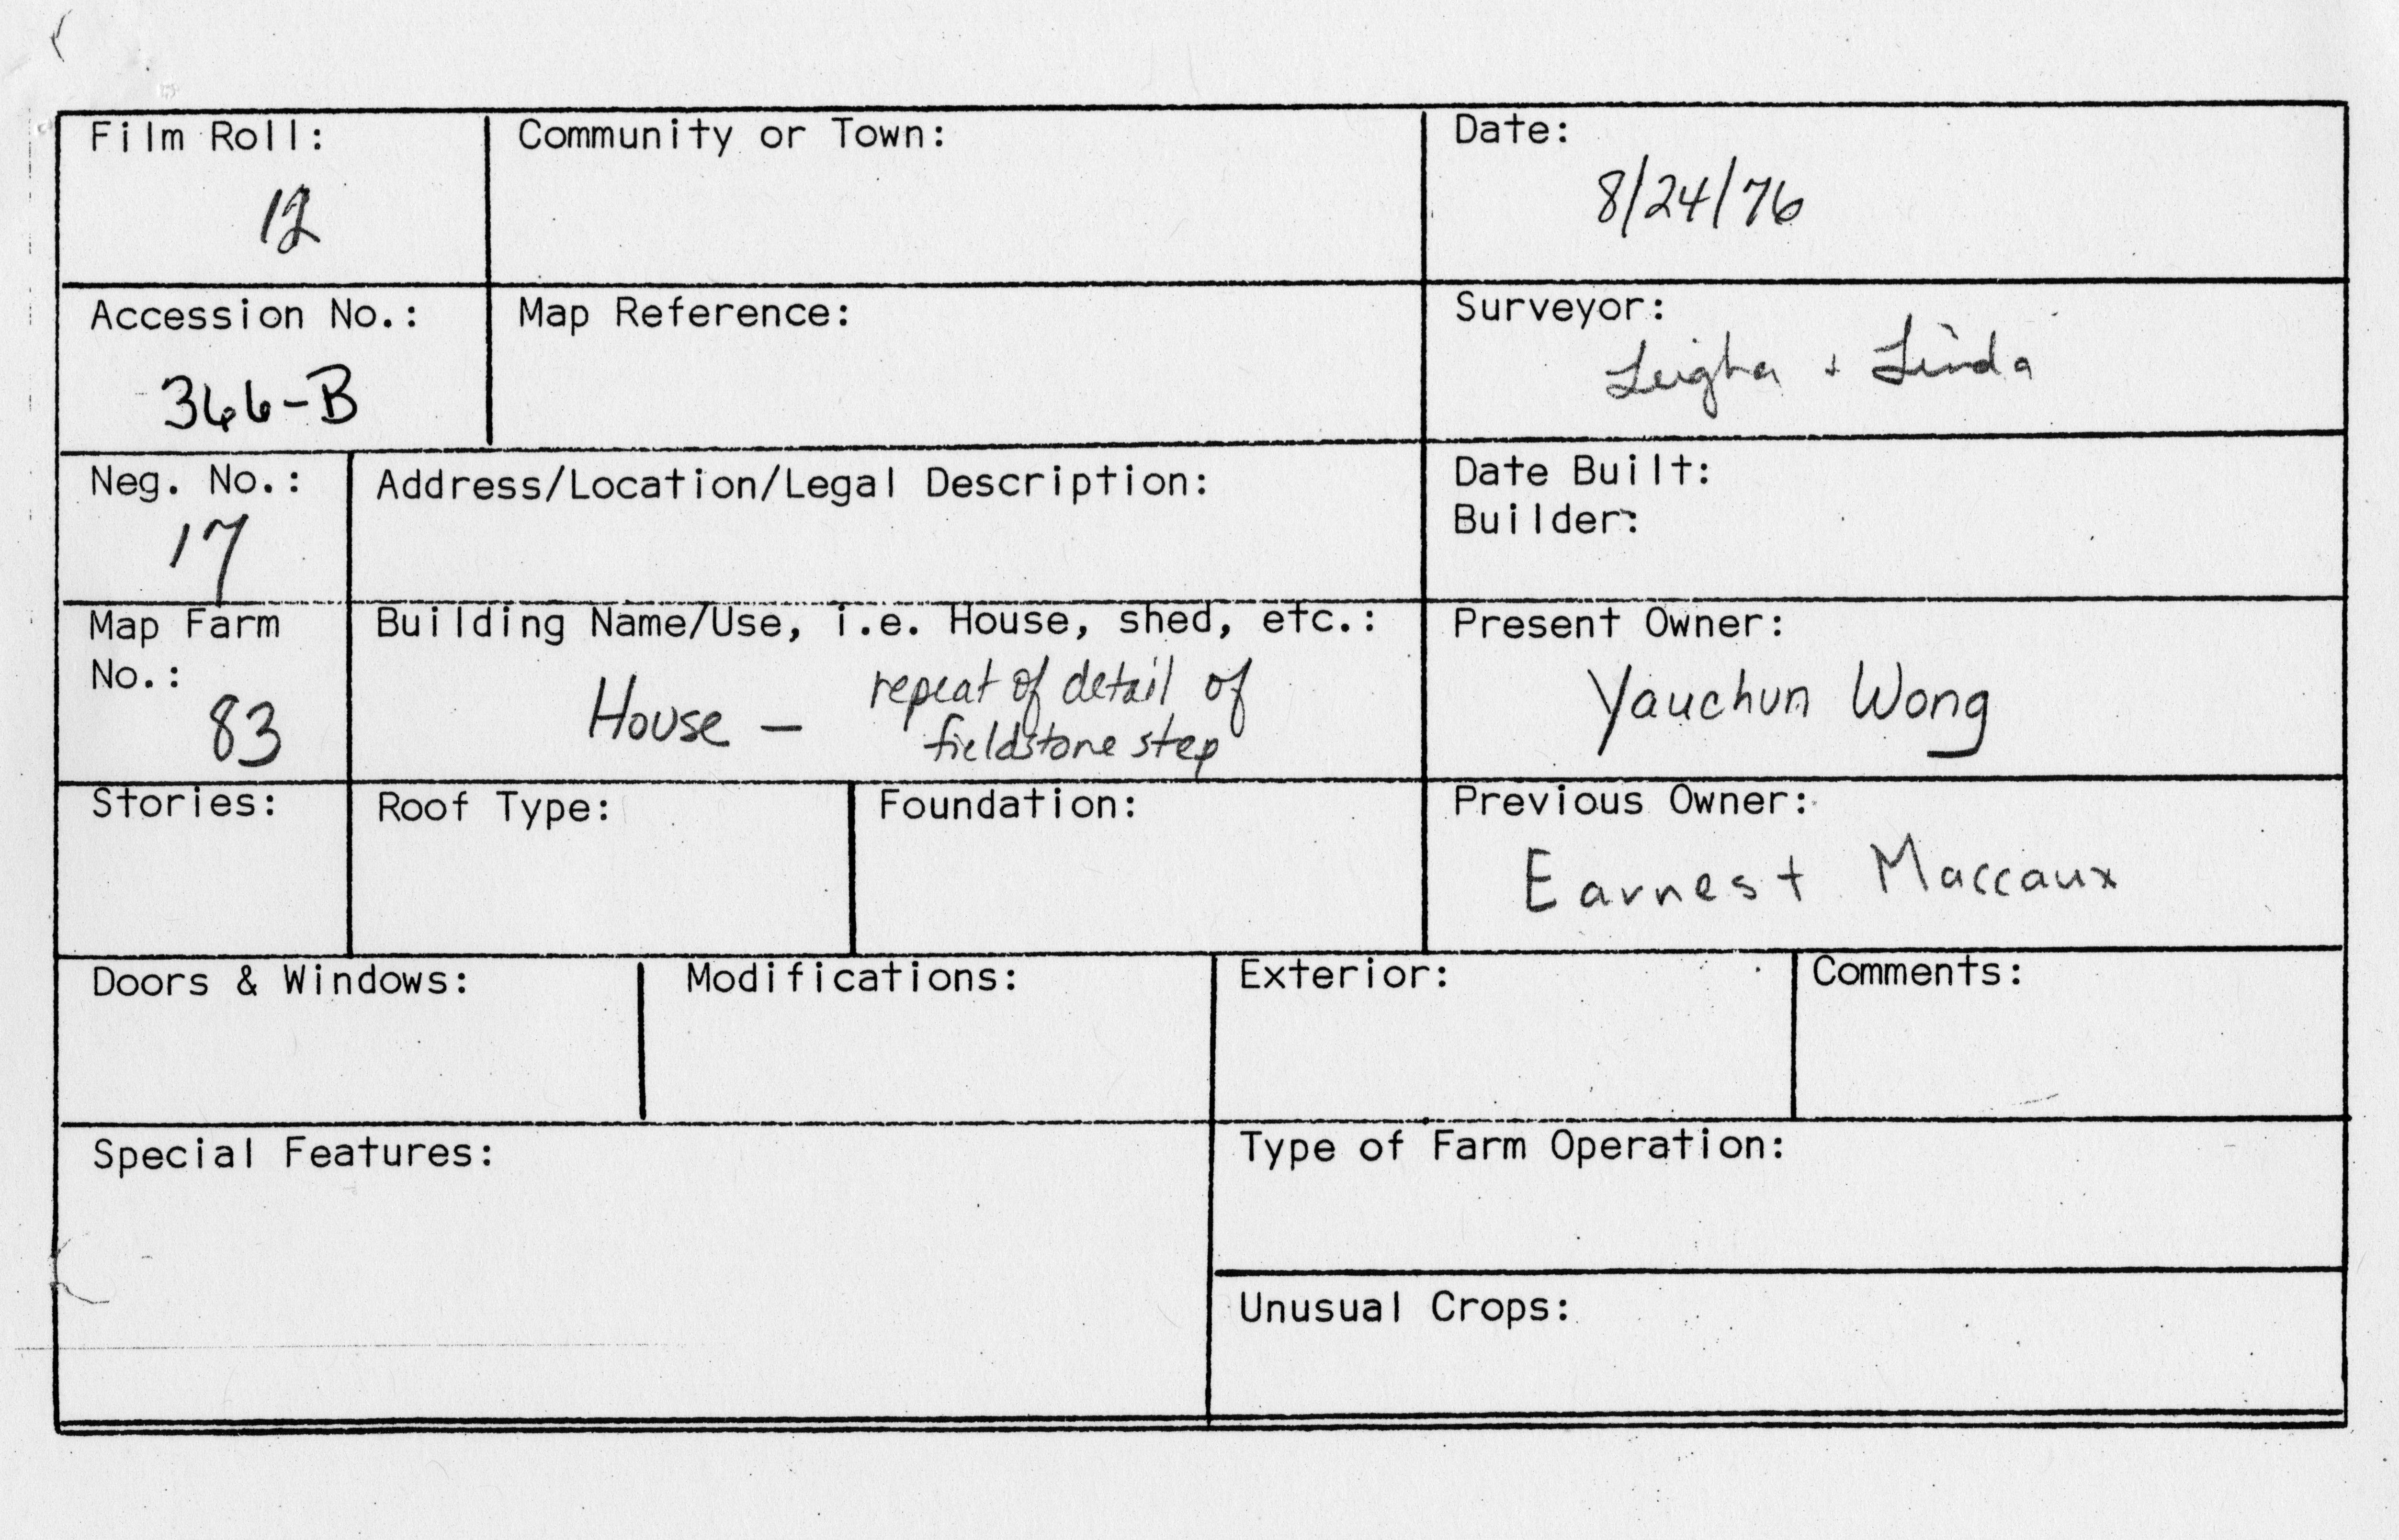 Film Roll:
12
Community or Town:
Date:
8/24/76
Accession No.:
366-B
Map Reference:
Surveyor:
Leigha + Linda
Neg. No.:
17
Address/Location/Legal Description:
Date Built:
Builder:
Map Farm
No.:
83
Building Name/Use, i.e. House, shed, etc.:
House — repeat of detail of
fieldstone step
Present Owner:
Yauchun Wong
Stories:
Roof Type:
Foundation:
Previous Owner:
Earnest Maccaux
Doors & Windows:
Modifications:
Exterior:
Comments:
Special Features:
Type of Farm Operation:
Unusual Crops: